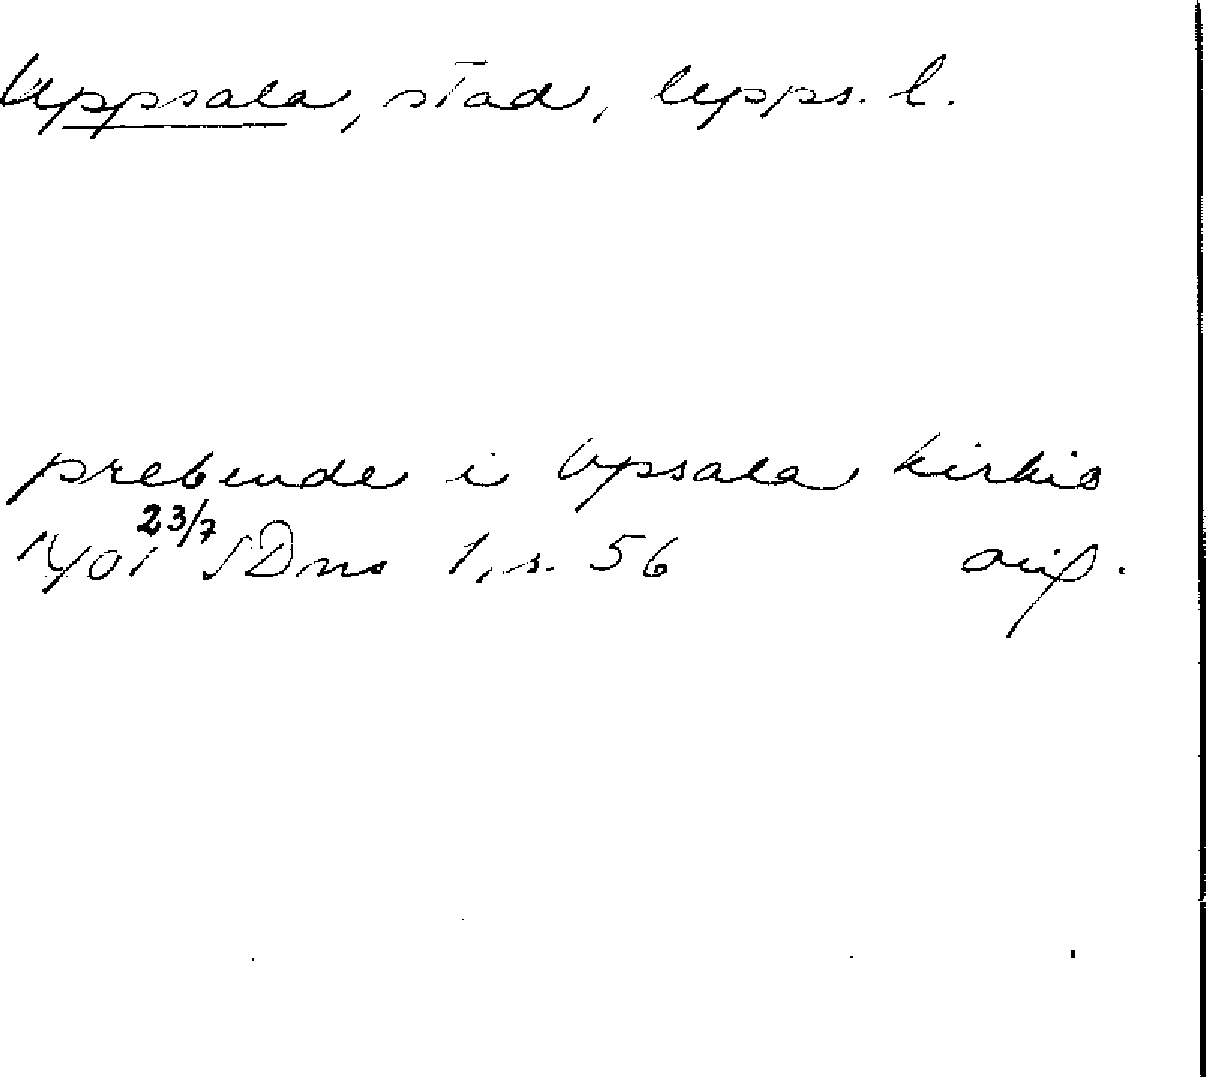 Uppsala, stad, Upps. l.
prebende i Upsala kirkio
1401 23/7 SDns 1, s. 56 avs.